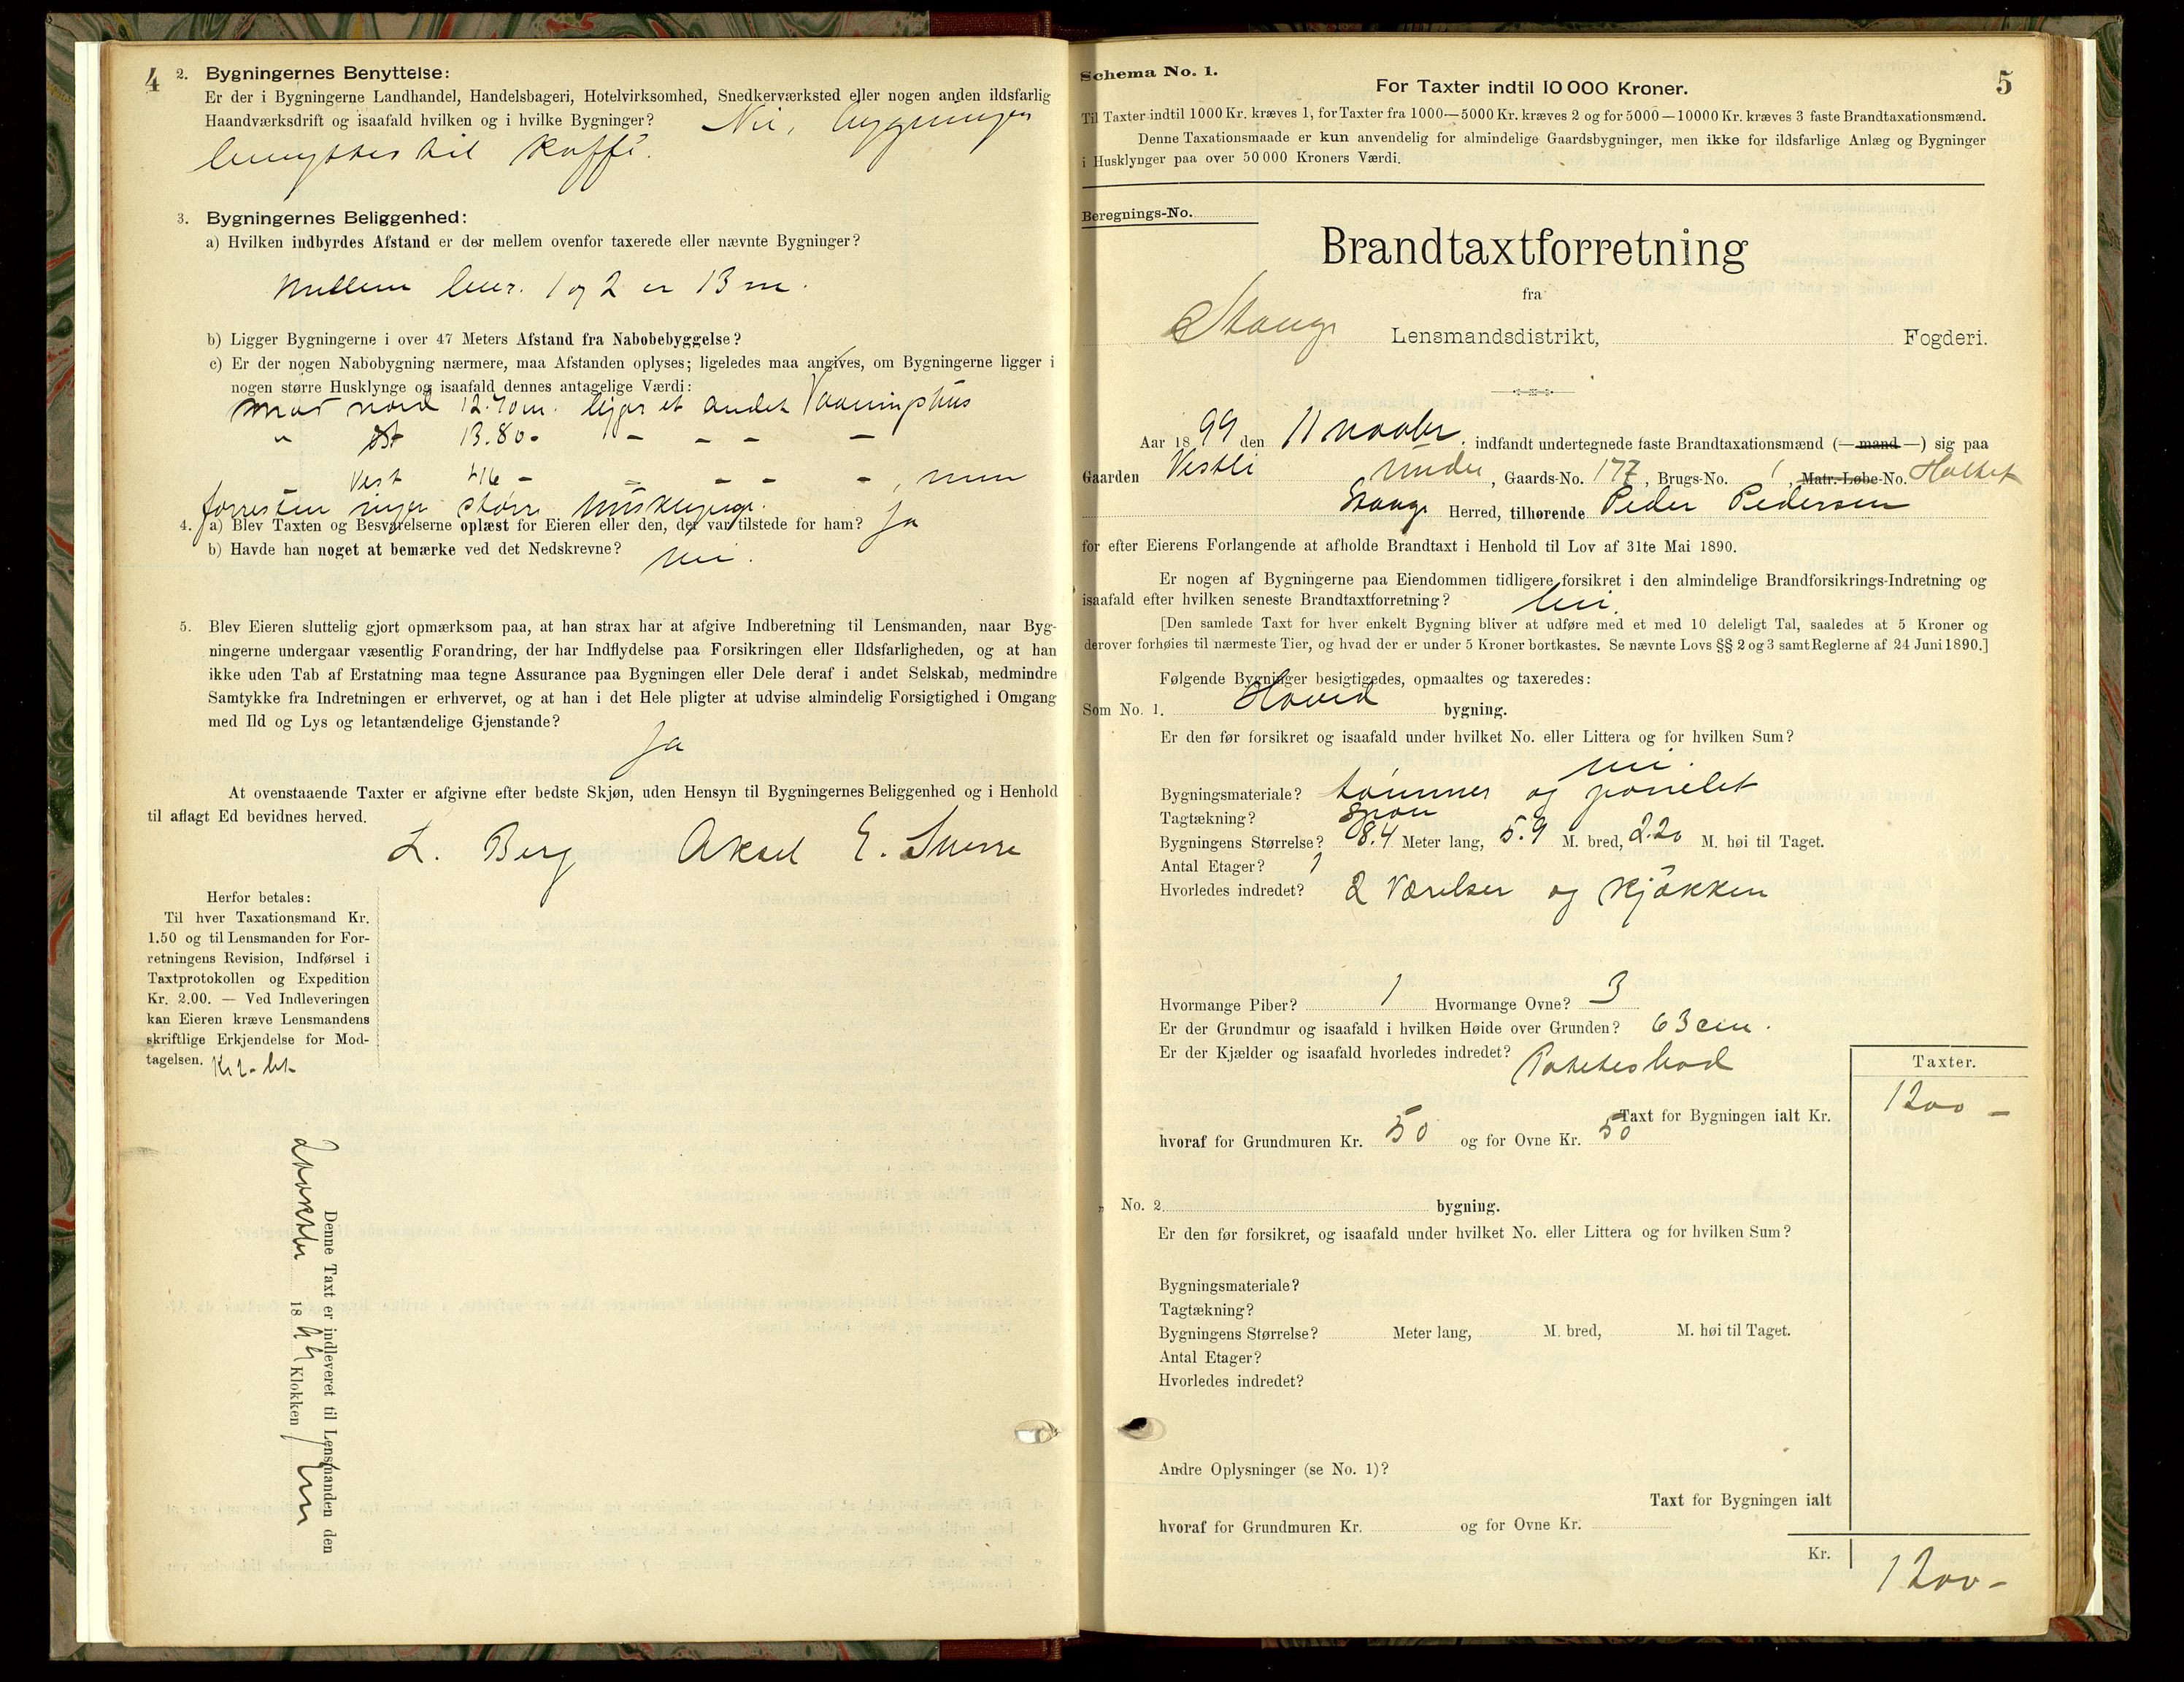 4
2. Bygningernes Benyttelse:
Er der i Bygningerne Landhandel, Handelsbageri, Hotelvirksomhed, Snedkerværksted eller nogen anden ildsfarlig
Haandværksdrift og isaafald hvilken og i hvilke Bygninger? Nei, bygningen
benyttes til Kaffé.
3. Bygningernes Beliggenhed:
a) Hvilken indbyrdes Afstand er der mellem ovenfor taxerede eller nævnte Bygninger?
Mellem 1 og 2 er 13 m.
b) Ligger Bygningerne i over 47 Meters Afstand fra Nabobebyggelse?
c) Er der nogen Nabobygning nærmere, maa Afstanden oplyses; ligeledes maa angives, om Bygningerne ligger i
nogen større Husklynge og isaafald dennes antagelige Værdi:
mod nord 12.70 m. ligger et andet Vaaningshus
" øst 13.80 - - - - -
Vest 46 - - - - - , men
forresten ingen større husklynge.
4. a) Blev Taxten og Besvarelserne oplæst for Eieren eller den, der var tilstede for ham? Ja
b) Havde han noget at bemærke ved det Nedskrevne? nei.
5. Blev Eieren sluttelig gjort opmærksom paa, at han strax har at afgive Indberetning til Lensmanden, naar Byg-
ningerne undergaar væsentlig Forandring, der har Indflydelse paa Forsikringen eller Ildsfarligheden, og at han
ikke uden Tab af Erstatning maa tegne Assurance paa Bygningen eller Dele deraf i andet Selskab, medmindre
Samtykke fra Indretningen er erhvervet, og at han i det Hele pligter at udvise almindelig Forsigtighed i Omgang
med Ild og Lys og letantændelige Gjenstande?
Ja
At ovenstaaende Taxter er afgivne efter bedste Skjøn, uden Hensyn til Bygningernes Beliggenhed og i Henhold
til aflagt Ed bevidnes herved.
L. Berg Aksel E.
Herfor betales:
Til hver Taxationsmand Kr.
1.50 og til Lensmanden for For-
retningens Revision, Indførsel i
Taxtprotokollen og Expedition
Kr. 2.00. — Ved Indleveringen
kan Eieren kræve Lensmandens
skriftlige Erkjendelse for Mod-
tagelsen. Kr 2- bet
Denne Taxt er indleveret til Lensmanden den
18 99 Klokken
Schema No. 1.
5
For Taxter indtil 10 000 Kroner.
Til Taxter indtil 1000 Kr. kræves 1, for Taxter fra 1000—5000 Kr. kræves 2 og for 5000—10000 Kr. kræves 3 faste Brandtaxationsmænd.
Denne Taxationsmaade er kun anvendelig for almindelige Gaardsbygninger, men ikke for ildsfarlige Anlæg og Bygninger
i Husklynger paa over 50 000 Kroners Værdi.
Beregnings-No.
Brandtaxtforretning
fra
Stange Lensmandsdistrikt, Fogderi.
Aar 1899 den 11 novbr. indfandt undertegnede faste Brandtaxationsmænd (—mand—) sig paa
Gaarden Vestli under, Gaards-No. 177, Brugs-No. 1, Matr.-Løbe-No. Holtet
Stange Herred, tilhørende Peder Pedersen
for efter Eierens Forlangende at afholde Brandtaxt i Henhold til Lov af 31te Mai 1890.
Er nogen af Bygningerne paa Eiendommen tidligere forsikret i den almindelige Brandforsikrings-Indretning og
isaafald efter hvilken seneste Brandtaxtforretning? Nei.
[Den samlede Taxt for hver enkelt Bygning bliver at udføre med et med 10 deleligt Tal, saaledes at 5 Kroner og
derover forhøies til nærmeste Tier, og hvad der er under 5 Kroner bortkastes. Se nævnte Lovs §§ 2 og 3 samt Reglerne af 24 Juni 1890.]
Følgende Bygninger besigtigedes, opmaaltes og taxeredes:
Som No. 1. Hoved bygning.
Er den før forsikret og isaafald under hvilket No. eller Littera og for hvilken Sum?
nei.
Bygningsmateriale? tømmer og panelet
Tagtækning? Spon
Bygningens Størrelse? 8.4 Meter lang, 5.9 M. bred, 2.20 M. høi til Taget.
Antal Etager? 1
Hvorledes indredet? 2 Værelser og Kjøkken
Hvormange Piber? 1 Hvormange Ovne? 3
Er der Grundmur og isaafald i hvilken Høide over Grunden? 63 cm.
Er der Kjælder og isaafald hvorledes indredet? Potetesbod
Taxter.
Taxt for Bygningen ialt Kr. 1200 -
hvoraf for Grundmuren Kr. 50 og for Ovne Kr. 50
" No. 2 bygning.
Er den før forsikret, og isaafald under hvilket No. eller Littera og for hvilken Sum?
Bygningsmateriale?
Tagtækning?
Bygningens Størrelse? Meter lang, M. bred, M. høi til Taget.
Antal Etager?
Hvorledes indredet?
Andre Oplysninger (se No. 1)?
Taxt for Bygningen ialt
hvoraf for Grundmuren Kr. og for Ovne Kr.
Kr. 1200 -